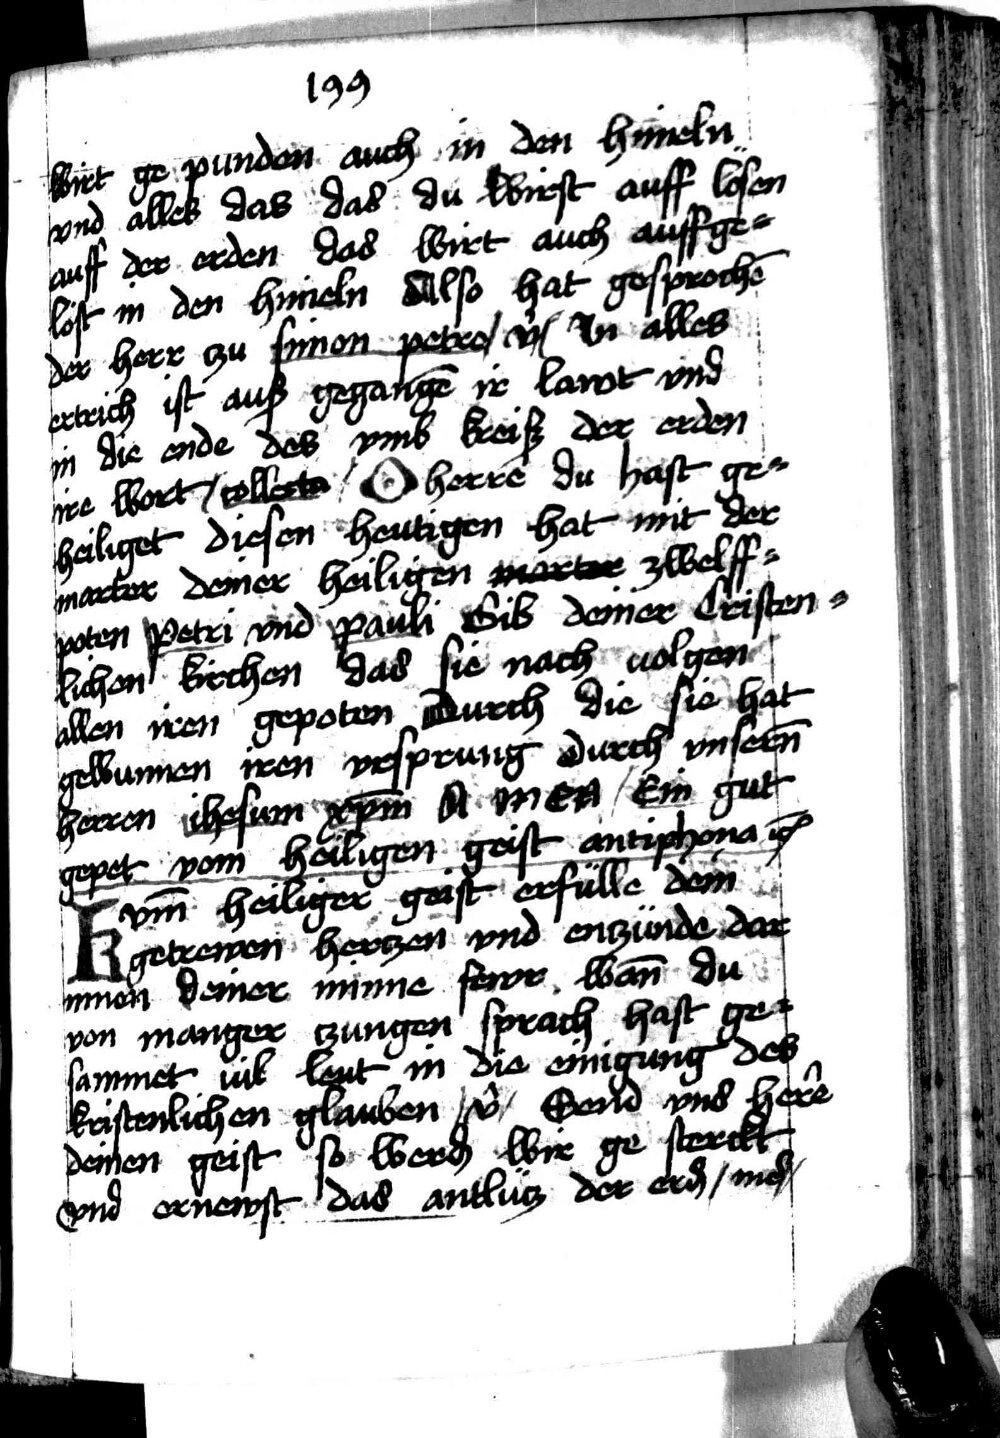 199
wirt ge punden auch in den himeln
vnd alles das das du wirst auff lösen
auff der erden das wirt auch auffge=
löst in den himeln Also hat gesprochē
der herr zu simon petro / v̂ / In alles
ertrich ist auß gegangē ir lawt vnd
in die ende des vmb kreiß der erden
ire wort / collecta / O herre du hast ge=
heiliget diesen heutigen hat mit der
marter deiner heiligen marter zwelff=
poten Petri vnd pauli Gib deiner Cristen=
lichen kirchen das sie nach uolgen
allen iren gepoten Durch die sie hat
gewunnen iren vrsprung Durch vnsern̄
herren ihesum xp̄m A M E N / Ein gut
gepet vom heiligen geist antiphona
Kvm̄ heiliger geist erfülle dein
getrewen hertzen vnd entzünde dar
innen deiner minne fewr. wan̄ du
von manger zungen sprach hast ge=
sammet uil leut in die einigung des
kristenlichen glauben / v̂ / Send vns herre
deinen geist so werd wir ge sterckt
vnd ernewst das antlütz der erd /